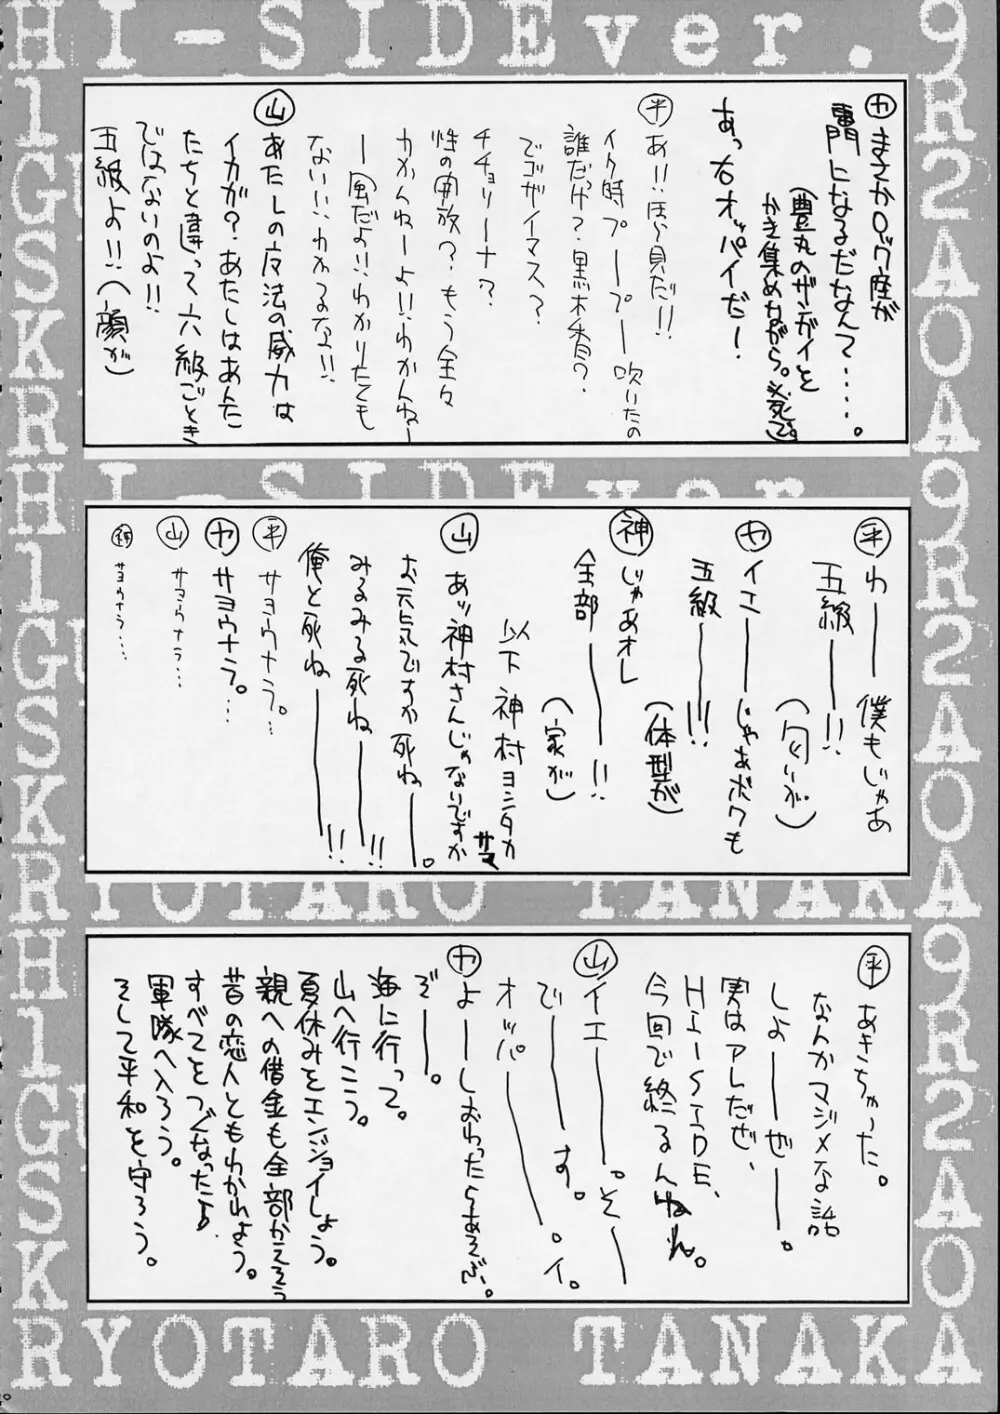 HI-SIDEver.
㋕まさかロック座が
鬥になるだなんて・・・・・。
(豊丸のザンガイを
かき集めながら。必死で。)
あっ右オッパイだー!
㊥あ!!ほら貝だ!!
イク時プープー吹いたの
誰だっけ?黒木香?
でゴザイマス?
チチョリーナ?
性の開放?もう全々
わかんねーよ!!わかんねー
ー風だよ!!わかりたくも
ない!!わかるな!!
㊤あたしの魔法の威力は
イカが?あたしはあんた
たちと違って六級ごとき
ではないのよ!!
五級よ!!(顔が)
平 わーー僕もじゃあ
五級ーー!!
(匂いが)
カ イエーーじゃあボクも
五級ーー!!!
(体型が)
神 じゃあオレ
全部ーー!!
(家が)
以下神村ヨシタカサマ
山 あッ神村さんじゃないですか
お元気ですか死ねーー。
みるみる死ねーー!!
俺と死ねーー!!
平 サヨウナラ。…
カ サヨウナラ。…
山 サヨウナラ…
神 サヨウナラ…
平 あきちゃった。
なんかマジメな話
しよーーぜーー。
実はアレだぜ、
HI-SIDE、
今回で終るんねん。
山 イエーー。そーー
でーーす。
オッパーー。イ。
カ よーーしおわったらあそぶ。
ぞーー。
海に行って。
山へ行こう。
夏休みをエンジョイしよう。
親への借金も全部かえそう
昔の恋人ともわかれよう。
すべてをつぐなったよ
軍隊へ入ろう。
そして平和を守ろう。
RYOTARO TANAKA